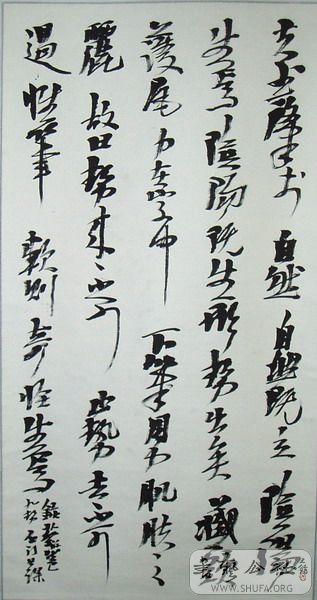 夫書肇于自然自然既立陰陽
生焉陰陽既生形勢出矣藏頭
護尾力在字中下筆用力肌膚之
麗故曰勢來不可止勢去不可
遏惟筆軟則奇怪生焉
錄蔡邕
九勢
WWW.SHUFA.ORG